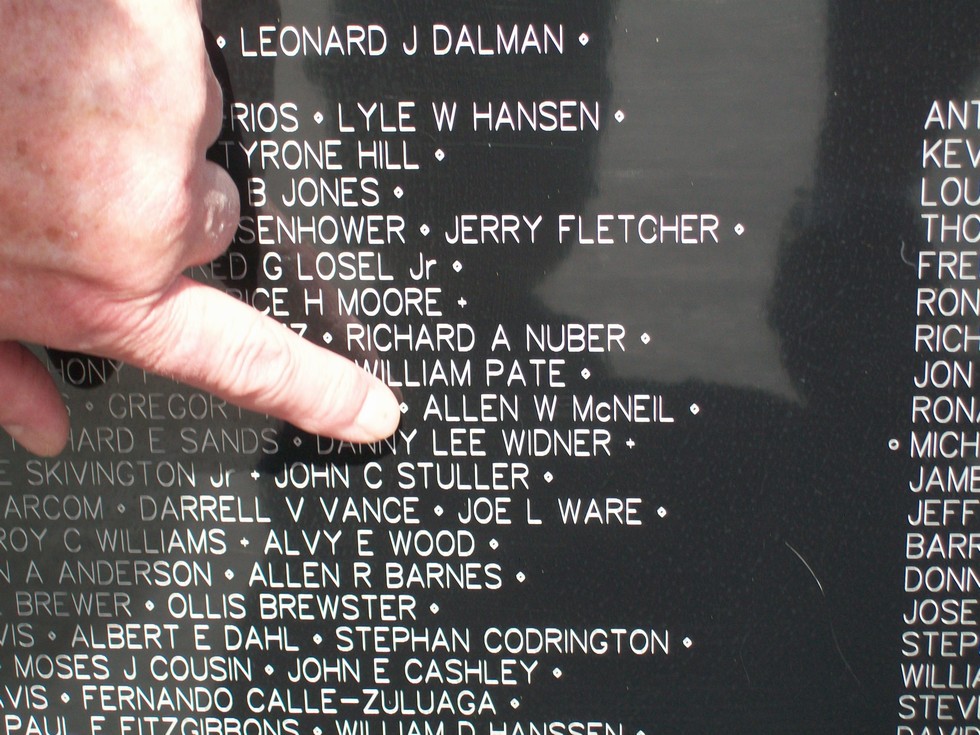 LEONARD J DALMAN
RIOS LYLE W HANSEN
TYRONE HILL
B JONES
SENHOWER JERRY FLETCHER
RED G LOSEL Jr
RICE H MOORE
Z RICHARD A NUBER
HONY WILLIAM PATE
S GREGORY ALLEN W McNEIL
HARD E SANDS DANNY LEE WIDNER
E SKIVINGTON Jr JOHN C STULLER
ARCOM DARRELL V VANCE JOE L WARE
ROY C WILLIAMS ALVY E WOOD
N A ANDERSON ALLEN R BARNES
BREWER OLLIS BREWSTER
VIS ALBERT E DAHL STEPHAN CODRINGTON
MOSES J COUSIN JOHN E CASHLEY
AVIS FERNANDO CALLE-ZULUAGA
PAUL F FITZGIBBONS WILLIAM D HANSSEN
ANT
KEV
LOU
THO
FRE
RON
RICH
JON
RONA
MICH
JAME
JEFF
BARR
DONN
JOSE
STEP
WILLIA
STEV
DAVID